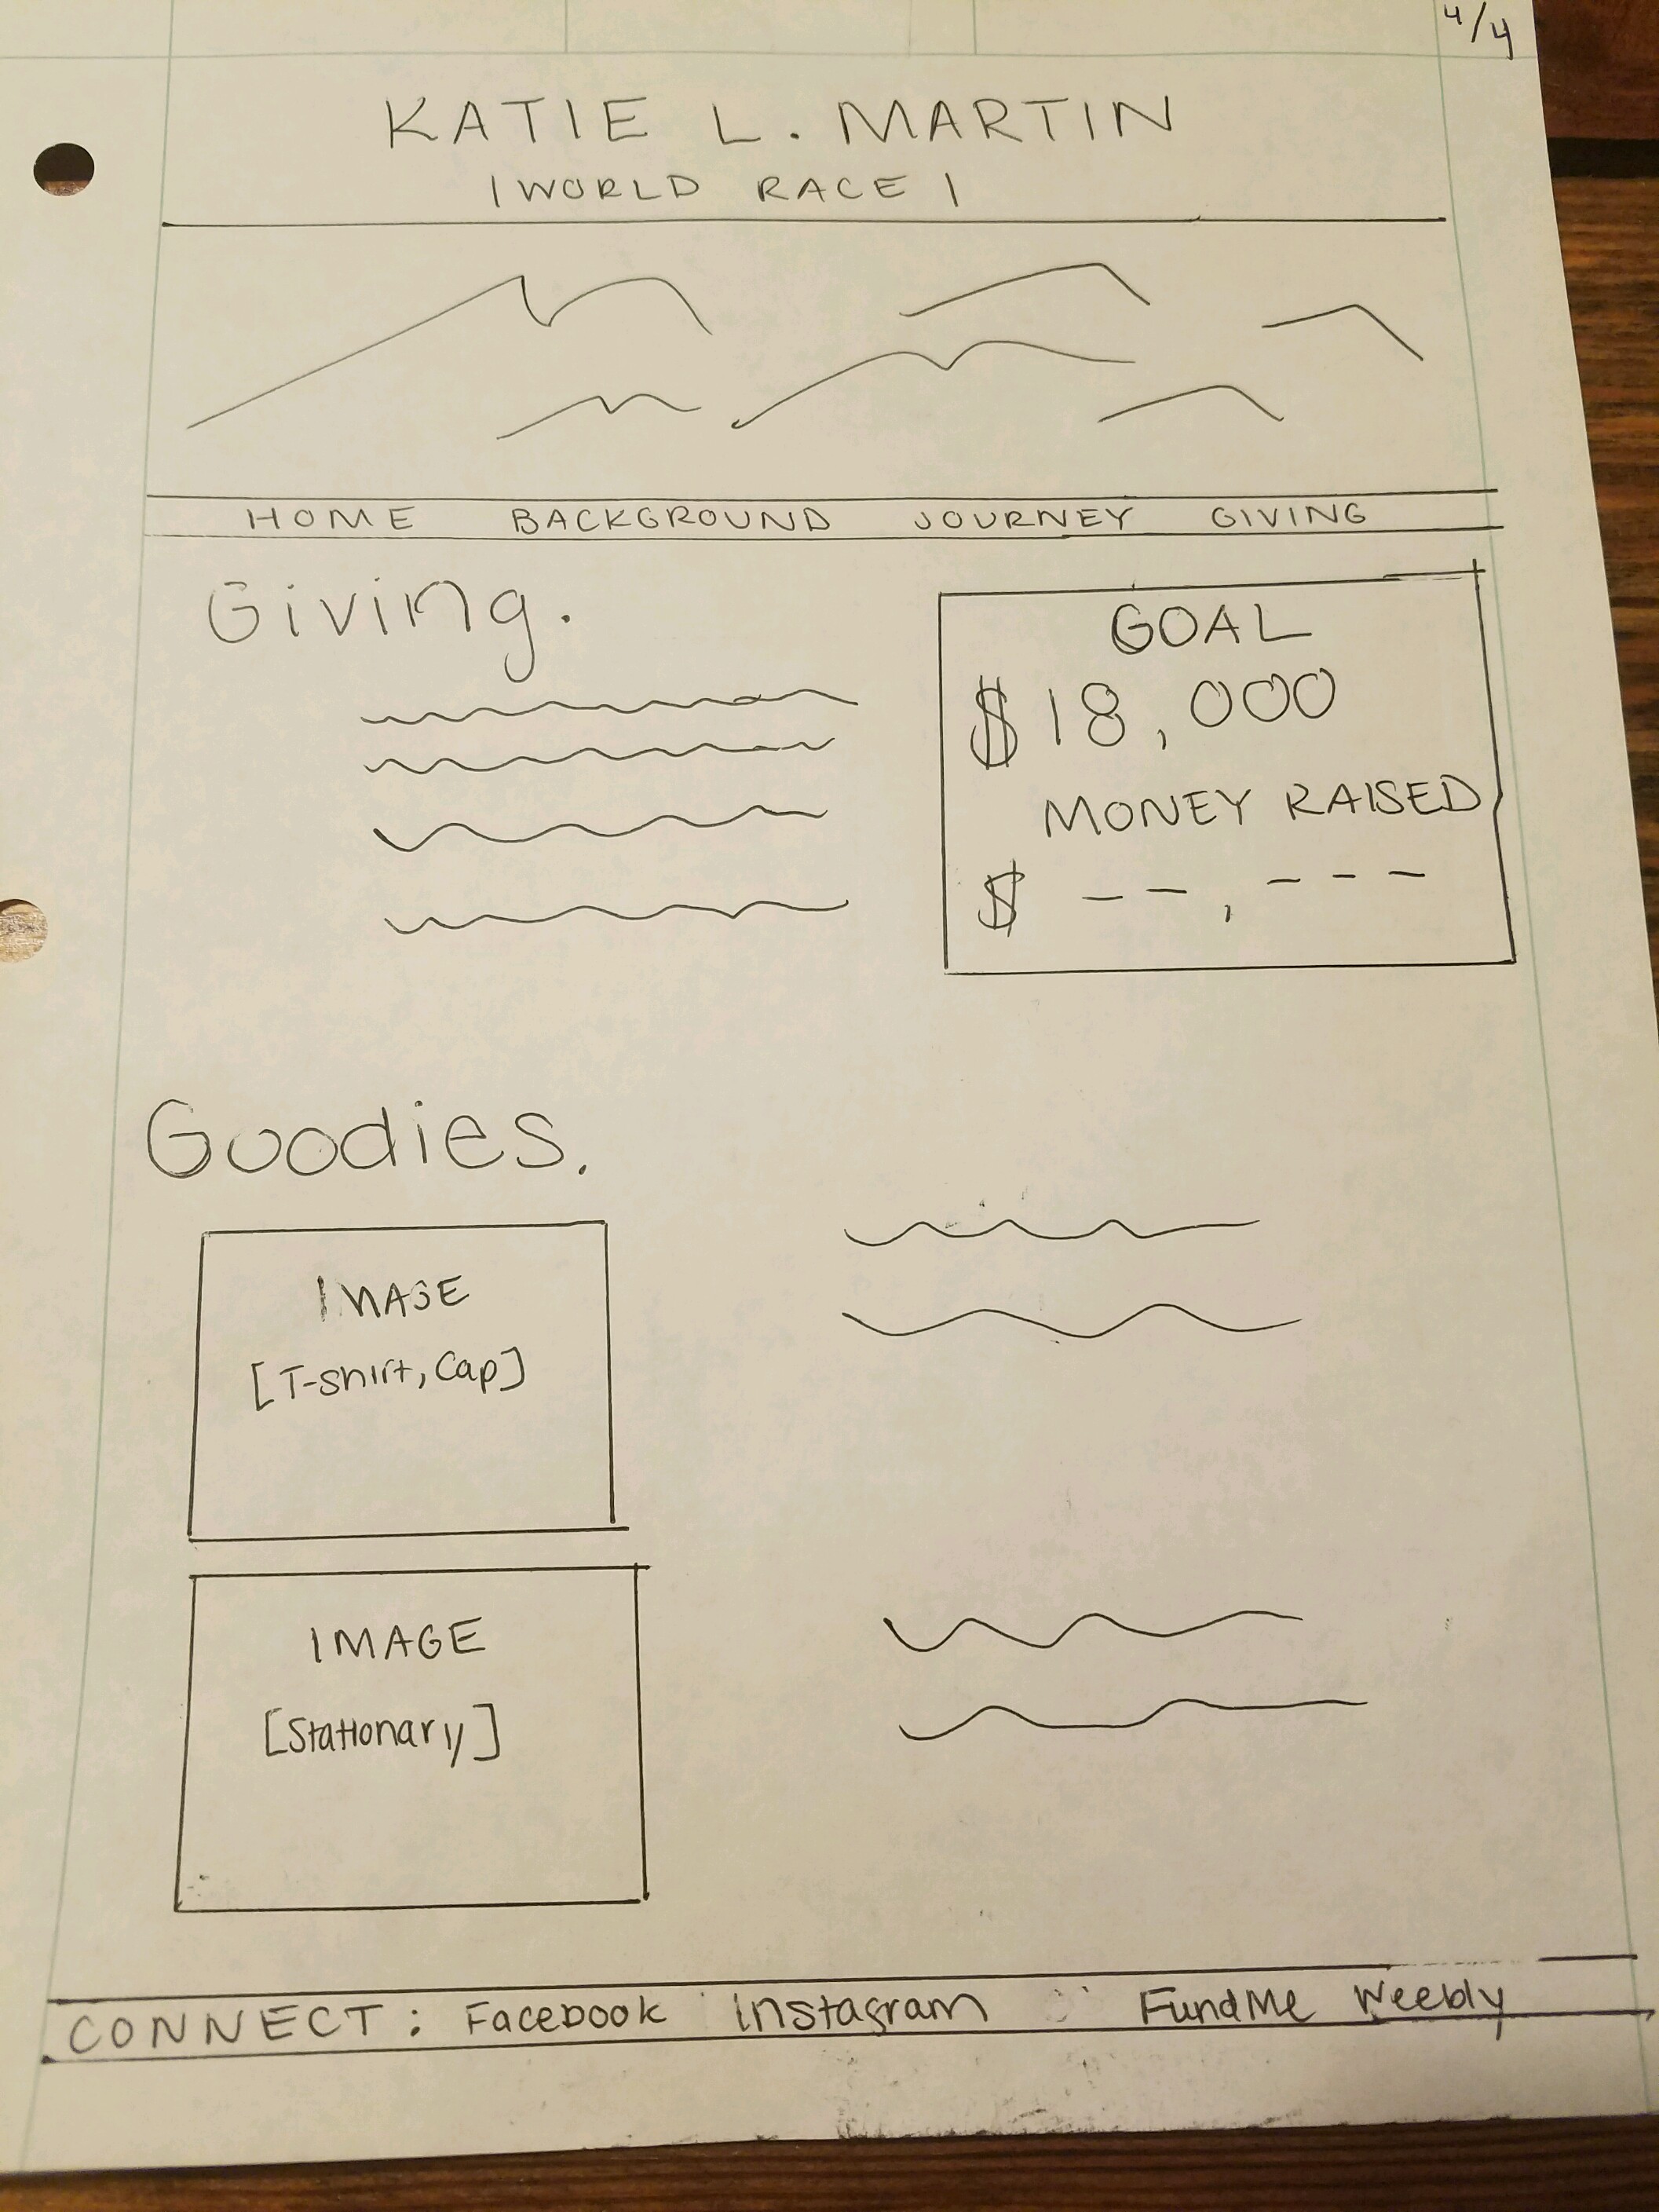 4/4
KATIE L. MARTIN
| WORLD RACE |
HOME BACKGROUND JOURNEY GIVING
Giving.
GOAL
$18,000
MONEY RAISED
$ _ _ , _ _ _
Goodies.
IMAGE
[T-shirt, Cap]
IMAGE
[Stationary]
CONNECT: Facebook instagram FundMe Weebly